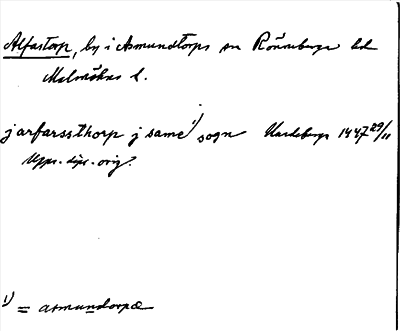 Alfastorp, by i Asmundtorps sn Rönnebergs hd
Malmöhus l.
jarfarssthorp j same 1) sogn Hardeberga 1447 29/11
Uppr. dipl. orig.
1) = asmundorpæ